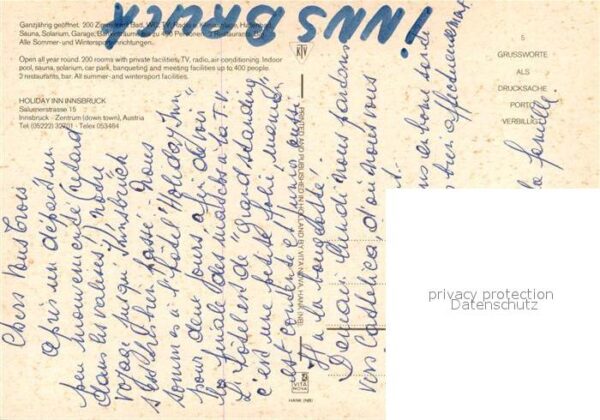 Ganzjährig geöffnet. 200 Zimmer mit Bad, WC, TV, Radio, Klimaanlage, Hallenbad,
Sauna, Solarium, Garage, Bankettsäume bis zu 400 Personen, 2 Restaurants, Bar.
Alle Sommer- und Wintersporteinrichtungen.
Open all year round. 200 rooms with private facilities, TV, radio, air conditioning. Indoor
pool, sauna, solarium, car park, banqueting and meeting facilities up to 400 people.
2 restaurants, bar. All summer- and wintersport facilities.
HOLIDAY INN INNSBRUCK
Salurnerstrasse 15
Innsbruck - Zentrum (down town), Austria
Tel (05222) 32701 - Telex 053484
INNSBRUCK
KTV
5
GRUSSWORTE
ALS
DRUCKSACHE
PORTO
VERBILLIGT
PRINTED AND PUBLISHED IN HOLLAND BY VITA NOVA, HANK (NB)
VITA
NOVA
HANK (NB)
Chers vous trois
après un départ un
peu mouvementé (retard
dans les valises) notre
voyage jusqu'Innsbruck
s'est très bien passé. Nous
sommes à l'hôtel "Holiday Inn"
pour deux jours afin de voir
la finale des matches à la T.V.
L'hôtel est de "Grand standing"
c'est une petite folie, mais il
est
à la
Demain lundi nous partons
vers Cattolica d'où nous vous
en bonne santé
très affectueusement
la famille
privacy protection
Datenschutz